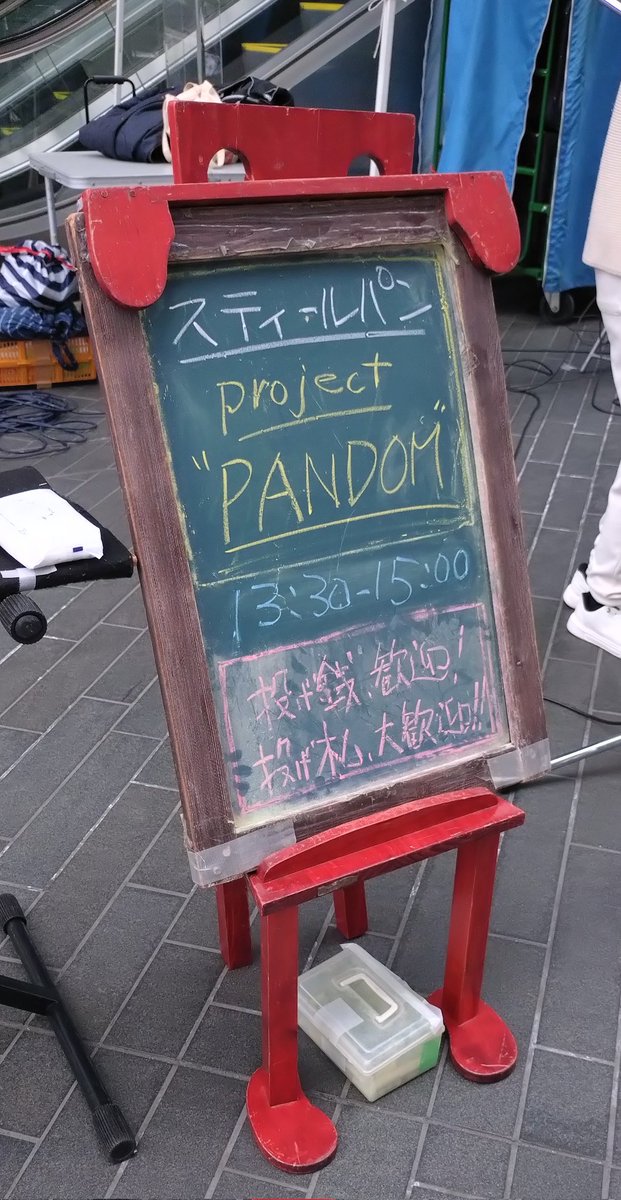 スティールパン
project
"PANDOM"
13:30-15:00
投げ銭、歓迎!
投げ札、大歓迎!!